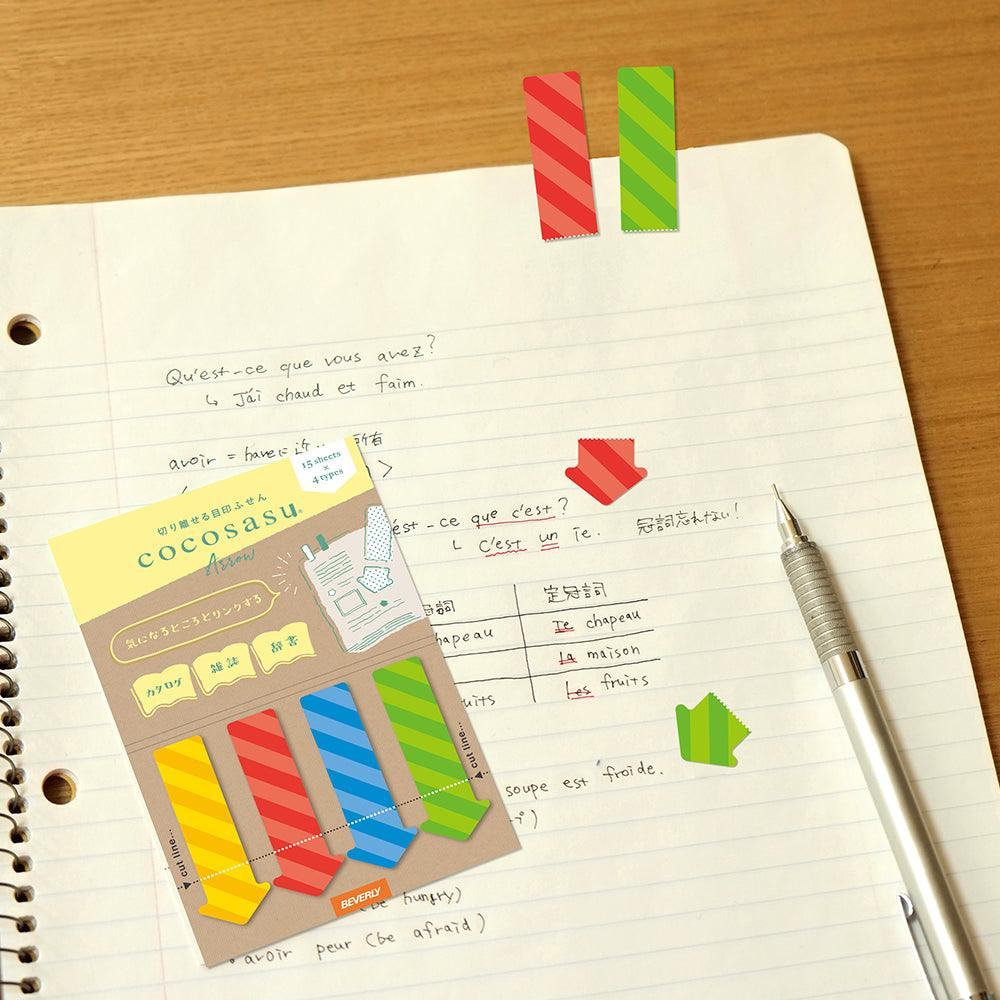 Qu'est-ce que vous avez?
↳ J'ai chaud et faim.
avoir = haveに近い 所有
15 sheets
×
4 types
切り離せる目印ふせん
cocosasu®
Arrow
気になるところとリンクする
カタログ
雑誌
辞書
cut line...
cut line...
BEVERLY
est-ce que c'est?
C'est un ie.
冠詞忘れない!
冠詞
定冠詞
chapeau
Le chapeau
La maison
uits
Les fruits
soupe est froide.
(be hungry)
avoir peur (be afraid)